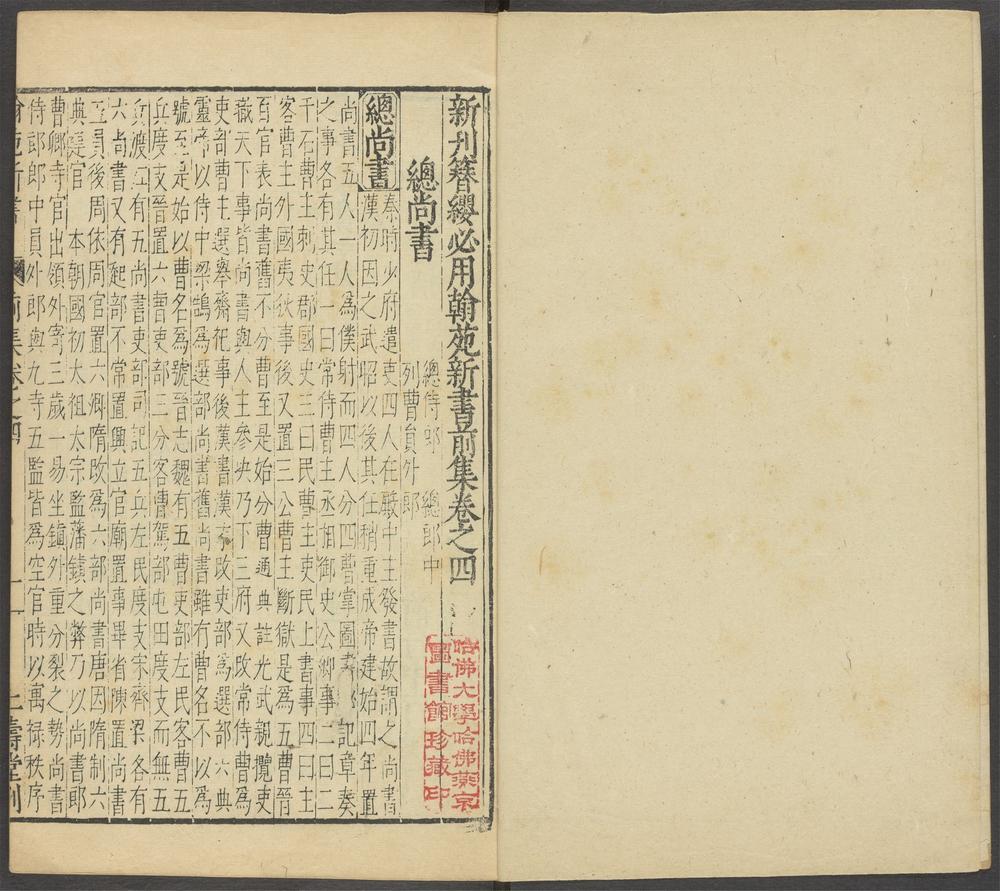 新刊簪纓必用翰苑新書前集卷之四
總尚書
總侍郎　總郎中
列曹員外郎
總尚書
秦時少府遣吏四人在殿中主發書故謂之尚書
漢初因之武昭以後其任稍重成帝建始四年置
尚書五人一人爲僕射而四人分四曹掌圖書　記章奏
之事各有其任一曰常侍曹主丞相御史公卿事二曰二
千石曹主刺史郡國史三曰民曹主吏民上書事四曰主
客曹主外國夷狄事後又置三公曹主斷獄是爲五曹晉
百官表尚書舊不分曹至是始分曹通典註光武親攬吏
職天下事皆尚書與人主參决乃下三府又改常侍曹爲
吏部曹主選舉齋祀事後漢書漢末改吏部爲選部六典
靈帝以侍中梁鵠爲選部尚書舊尚書雖有曹名不以爲
號至是始以曹名爲號晉志魏有五曹吏部左民客曹五
兵度支晉置六曹吏部三分客曹駕部屯田度支而無五
兵渡江有五尚書吏部司記五兵左民度支宋齊梁各有
六尚書又有起部不常置興立官廟置事畢省陳置尚書
五員後周依周官置六卿隋改爲六部尚書唐因隋制六
典是官　本朝國初太祖太宗監藩鎮之弊乃以尚書郎
曹卿寺官出領外寄三歲一易坐鎮外重分裂之勢尚書
侍郎郎中員外郎與九寺五監皆爲空官時以寓禄秩序
翰苑新書　前集卷之四　一　仁壽堂刊
哈佛大學哈佛燕京
圖書館珍藏印